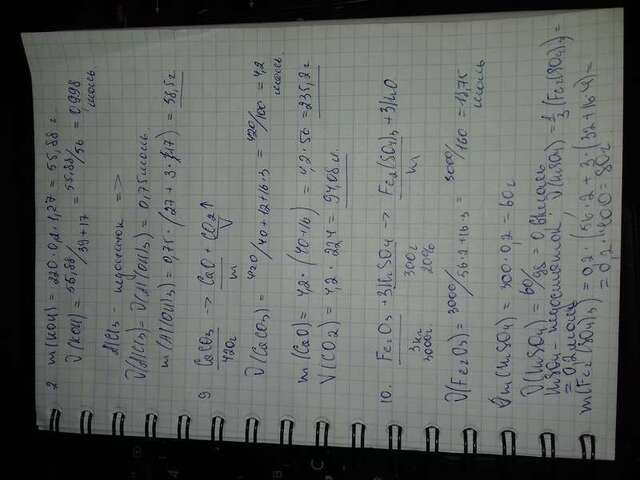 2 m(KOH) = 220 · 0,2 · 1,27 = 55,88 г
ν(KOH) = 55,88/39+17 = 55,88/56 = 0,998 моль
AlCl₃ - недостаток =>
ν(AlCl₃) = ν(Al(OH)₃) = 0,75 моль
m(Al(OH)₃) = 0,75 · (27 + 3 · 17) = 58,5 г
9 CaCO₃ -> CaO + CO₂↑
420г m V
ν(CaCO₃) = 420/40+12+16·3 = 420/100 = 4,2 моль
m(CaO) = 4,2 · (40+16) = 4,2 · 56 = 235,2 г
V(CO₂) = 4,2 · 22,4 = 94,08 л
10. Fe₂O₃ + 3H₂SO₄ -> Fe₂(SO₄)₃ + 3H₂O
3кг 300г m
3000г 20%
ν(Fe₂O₃) = 3000/56·2+16·3 = 3000/160 = 18,75 моль
m(H₂SO₄) = 300 · 0,2 = 60г
ν(H₂SO₄) = 60/98 = 0,6 моль
H₂SO₄ - недостаток, ν(H₂SO₄) = 1/3 (Fe₂(SO₄)₃) =
= 0,2 моль
m(Fe₂(SO₄)₃) = 0,2 · (56 · 2 + 3 · (32+16·4)) =
= 0,2 · 400 = 80г